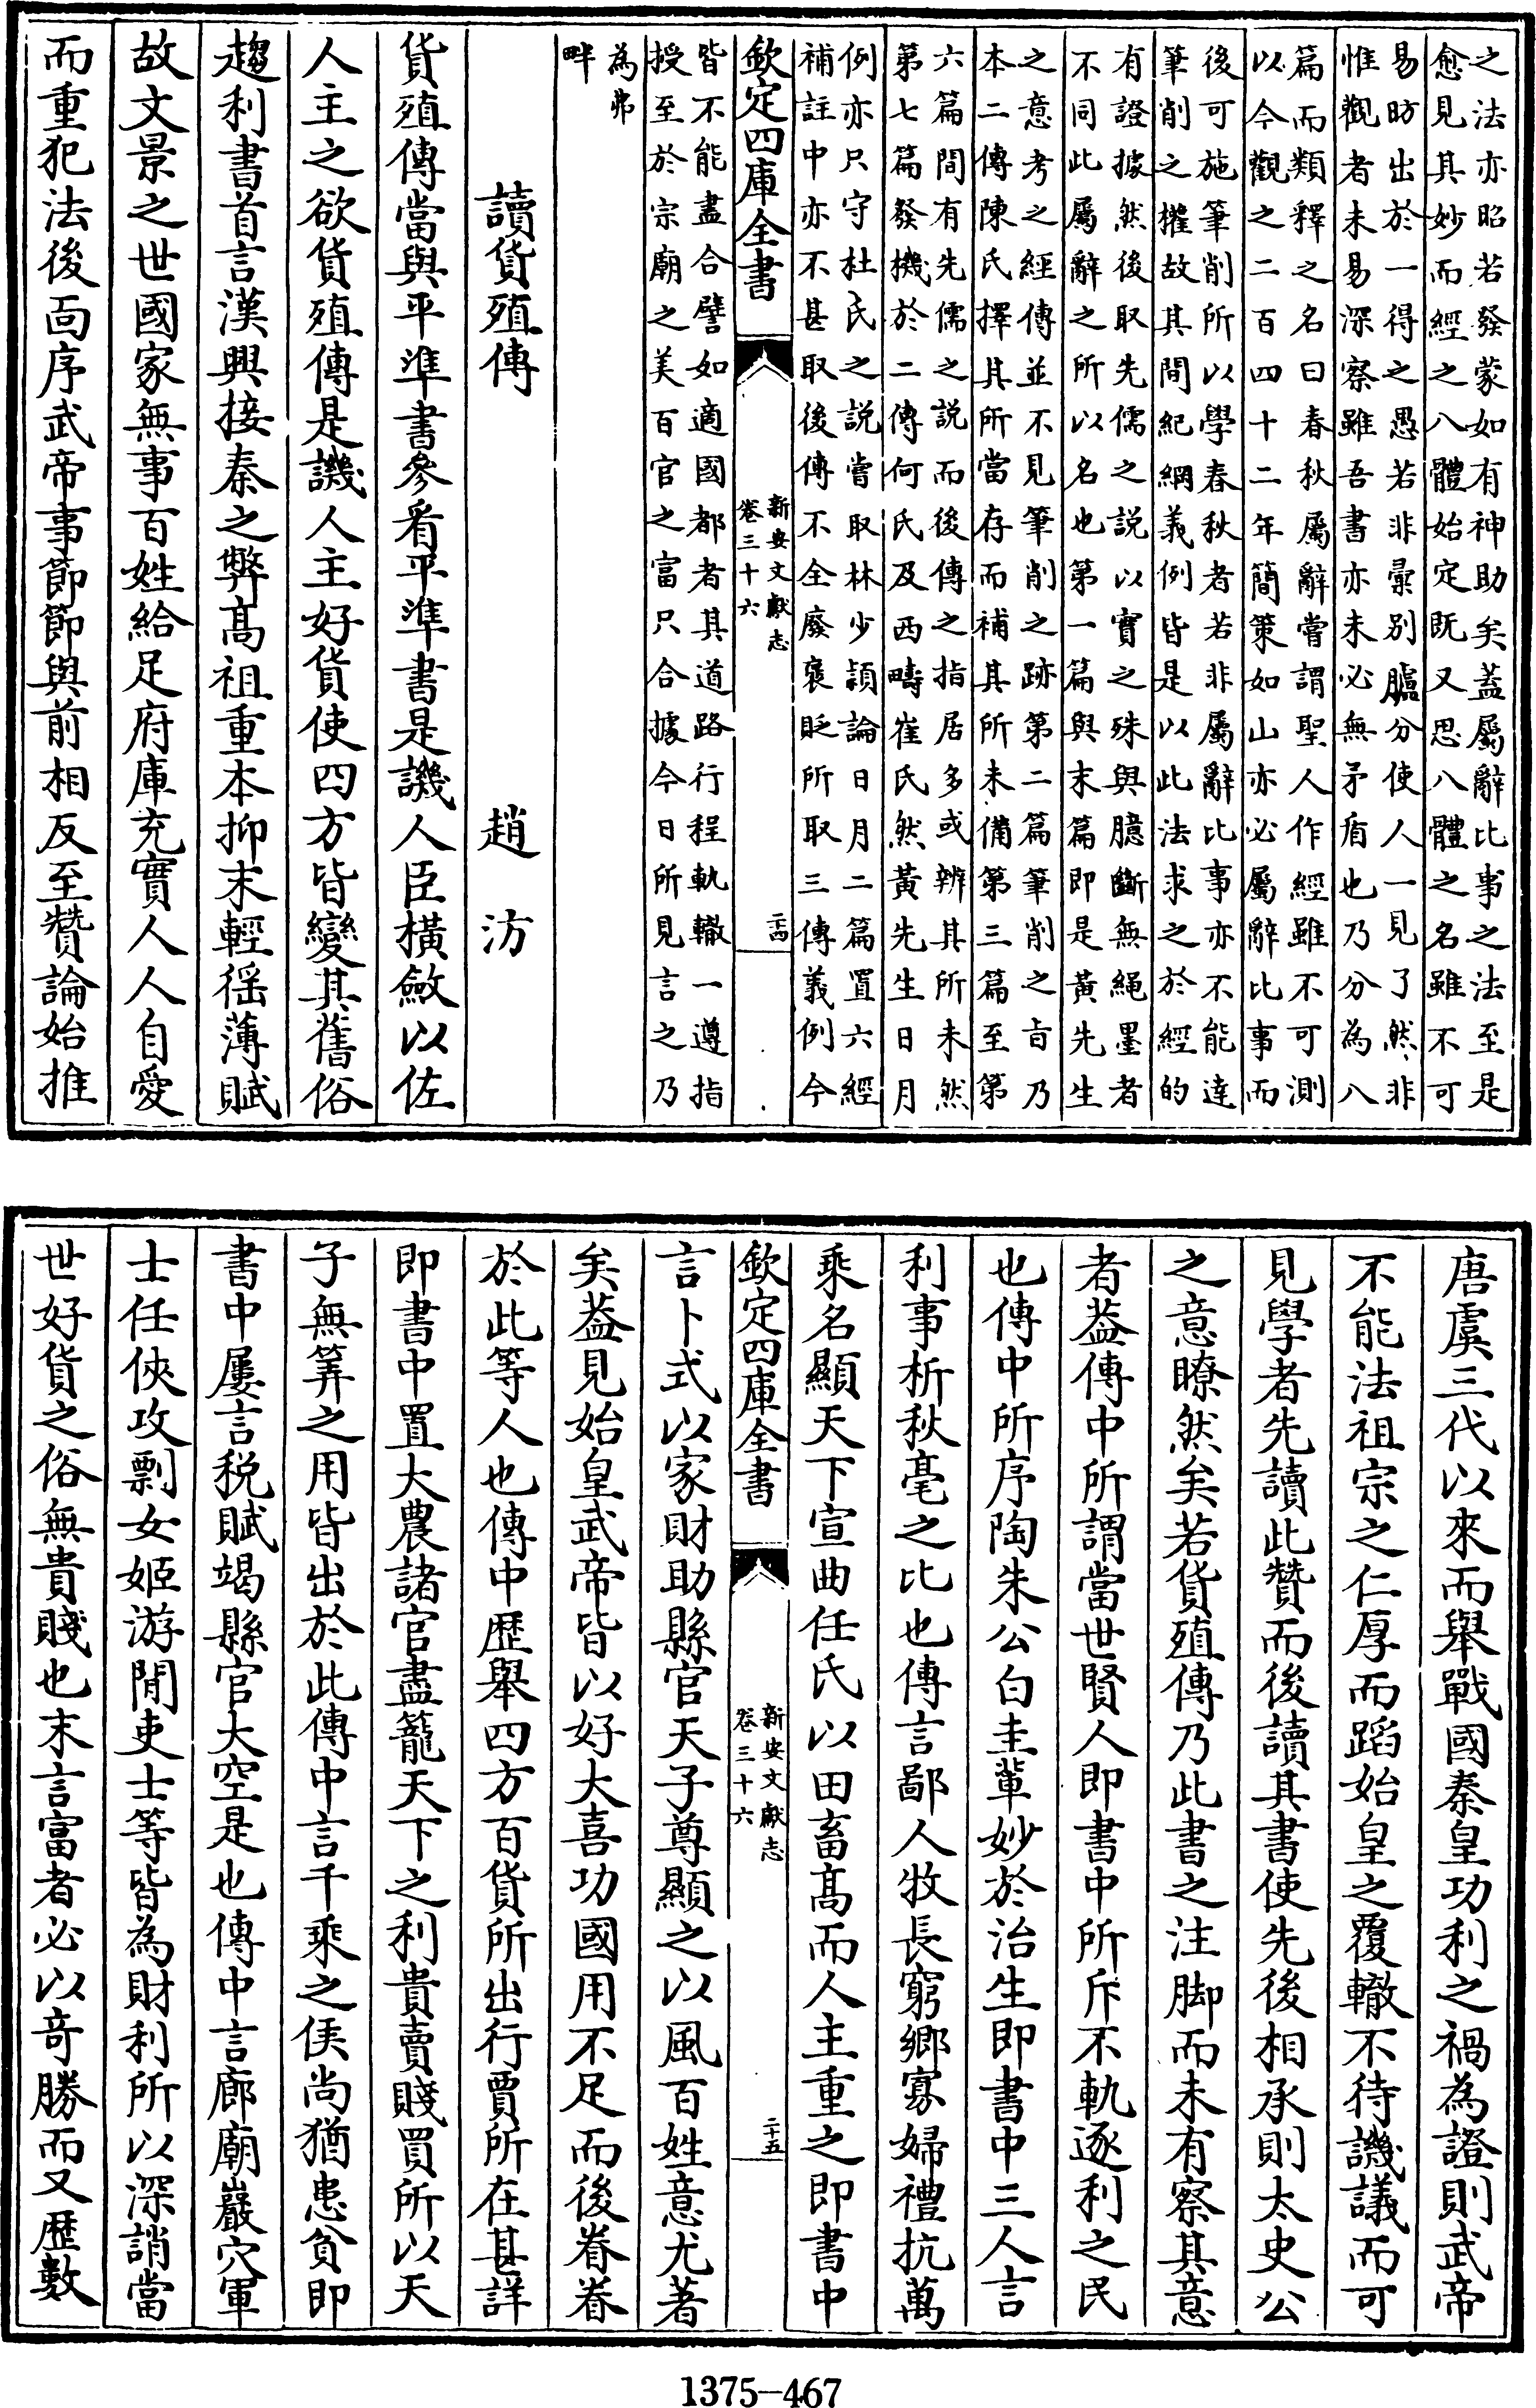 之法亦昭若發蒙如有神助矣蓋屬辭比事之法至是
愈見其妙而經之八體始定既又思八體之名雖不可
易昉出於一得之愚若非彚別臚分使人一見了然非
惟觀者未易深察雖吾書亦未必無矛盾也乃分為八
篇而類釋之名曰春秋屬辭嘗謂聖人作經雖不可測
以今觀之二百四十二年簡策如山亦必屬辭比事而
後可施筆削所以學春秋者若非屬辭比事亦不能達
筆削之權故其間紀綱義例皆是以此法求之於經的
有證據然後取先儒之説以實之殊與臆斷無繩墨者
不同此屬辭之所以名也第一篇與末篇即是黄先生
之意考之經傳並不見筆削之跡第二篇筆削之㫖乃
本二傳陳氏擇其所當存而補其所未備第三篇至第
六篇間有先儒之説而後傳之指居多或辨其所未然
第七篇發機於二傳何氏及西疇崔氏然黄先生日月
例亦只守杜氏之説嘗取林少穎論日月二篇置六經
補註中亦不甚取後傳不全廢褒貶所取三傳義例今
欽定四庫全書
新安文獻志
卷三十六
二十四
皆不能盡合譬如適國都者其道路行程軌轍一遵指
授至於宗廟之美百官之富只合據今日所見言之乃
為弗
畔
讀貨殖傳
趙汸
貨殖傳當與平準書參看平準書是譏人臣橫斂以佐
人主之欲貨殖傳是譏人主好貨使四方皆變其舊俗
趨利書首言漢興接秦之弊髙祖重本抑末輕徭薄賦
故文景之世國家無事百姓給足府庫充實人人自愛
而重犯法後面序武帝事節節與前相反至贊論始推
唐虞三代以來而舉戰國秦皇功利之禍為證則武帝
不能法祖宗之仁厚而蹈始皇之覆轍不待譏議而可
見學者先讀此贊而後讀其書使先後相承則太史公
之意瞭然矣若貨殖傳乃此書之注脚而未有察其意
者葢傳中所謂當世賢人即書中所斥不軌逐利之民
也傳中所序陶朱公白圭輩妙於治生即書中三人言
利事析秋毫之比也傳言鄙人牧長窮鄉寡婦禮抗萬
乘名顯天下宣曲任氏以田畜髙而人主重之即書中
欽定四庫全書
新安文獻志
卷三十六
二十五
言卜式以家財助縣官天子尊顯之以風百姓意尤著
矣葢見始皇武帝皆以好大喜功國用不足而後眷眷
於此等人也傳中歴舉四方百貨所出行賈所在甚詳
即書中置大農諸官盡籠天下之利貴賣賤買所以天
子無筭之用皆出於此傳中言千乘之侯尚猶患貧即
書中屢言税賦竭縣官大空是也傳中言廊廟巖穴軍
士任俠攻剽女姬游閒吏士等皆為財利所以深誚當
世好貨之俗無貴賤也末言富者必以竒勝而又歴數
1375-467